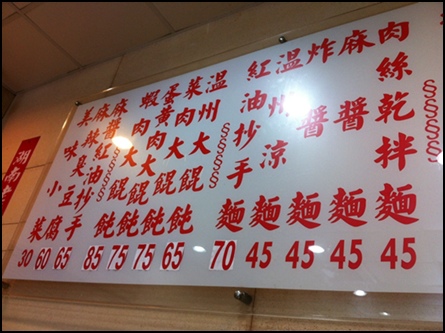 肉絲乾拌麵 45
麻醬麵 45
炸醬麵 45
溫州涼麵 45
紅油抄手麵 70
§§§§§§§
溫州大餛飩 65
菜肉大餛飩 75
蛋黃肉大餛飩 75
蝦肉大餛飩 85
§§§§§
麻醬紅油抄手 65
麻辣臭豆腐 60
美味小菜 30
湖南